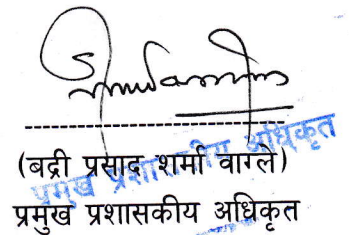 (बद्री प्रसाद शर्मा वाग्ले)
प्रमुख प्रशासकीय अधिकृत
प्रमुख प्रशासकीय अधिकृत